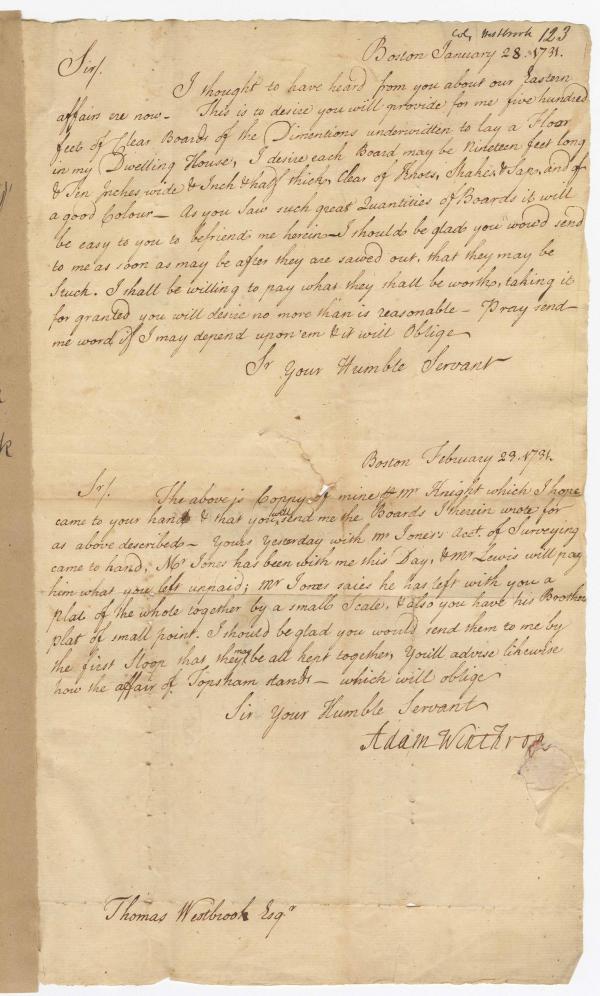 Col. Westbrook 123
Boston January 28. 1731.
Sir/.
I thought to have heard from you about our Eastern
affairs ere now – This is to desire you will provide for me five hundred
feet of Clear Boards of the Dimentions underwritten to lay a Floor
in my Dwelling House, I desire each Board may be Nineteen feet long
& Ten Inches wide & Inch & half thick, Clear of Knots, Shakes & Sap, and of
a good Colour – As you Saw such great Quantities of Boards it will
be easy to you to befriend me herein – I should be glad you would send
to me as soon as may be after they are sawed out, that they may be
Stuck. I shall be willing to pay what they shall be worth, taking it
for granted you will desire no more than is reasonable – Pray send
me word if I may depend upon 'em & it will Oblige
Sr Your Humble Servant
Boston February 29. 1731.
Sr/. The above is Coppy of mine Mr Knight which I hope
came to your hand & that you will send me the Boards I therein wrote for
as above described – Yours Yesterday with Mr Jones's Acct. of Surveying
came to hand, Mr Jones has been with me this Day, & Mr Lewis will pay
him what you left unpaid; Mr Jones saies he has left with you a
plat of the whole together by a small Scale, & also you have his Boothbe
plat of small point. I should be glad you would send them to me by
the first Sloop that they may be all kept together, Youll advise likewise
how the affair of Topsham stands – which will oblige
Sir Your Humble Servant
Adam Winthrop
Thomas Westbrook Esqr